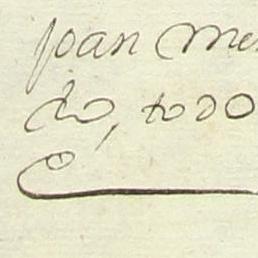 Joan Me
do, todo